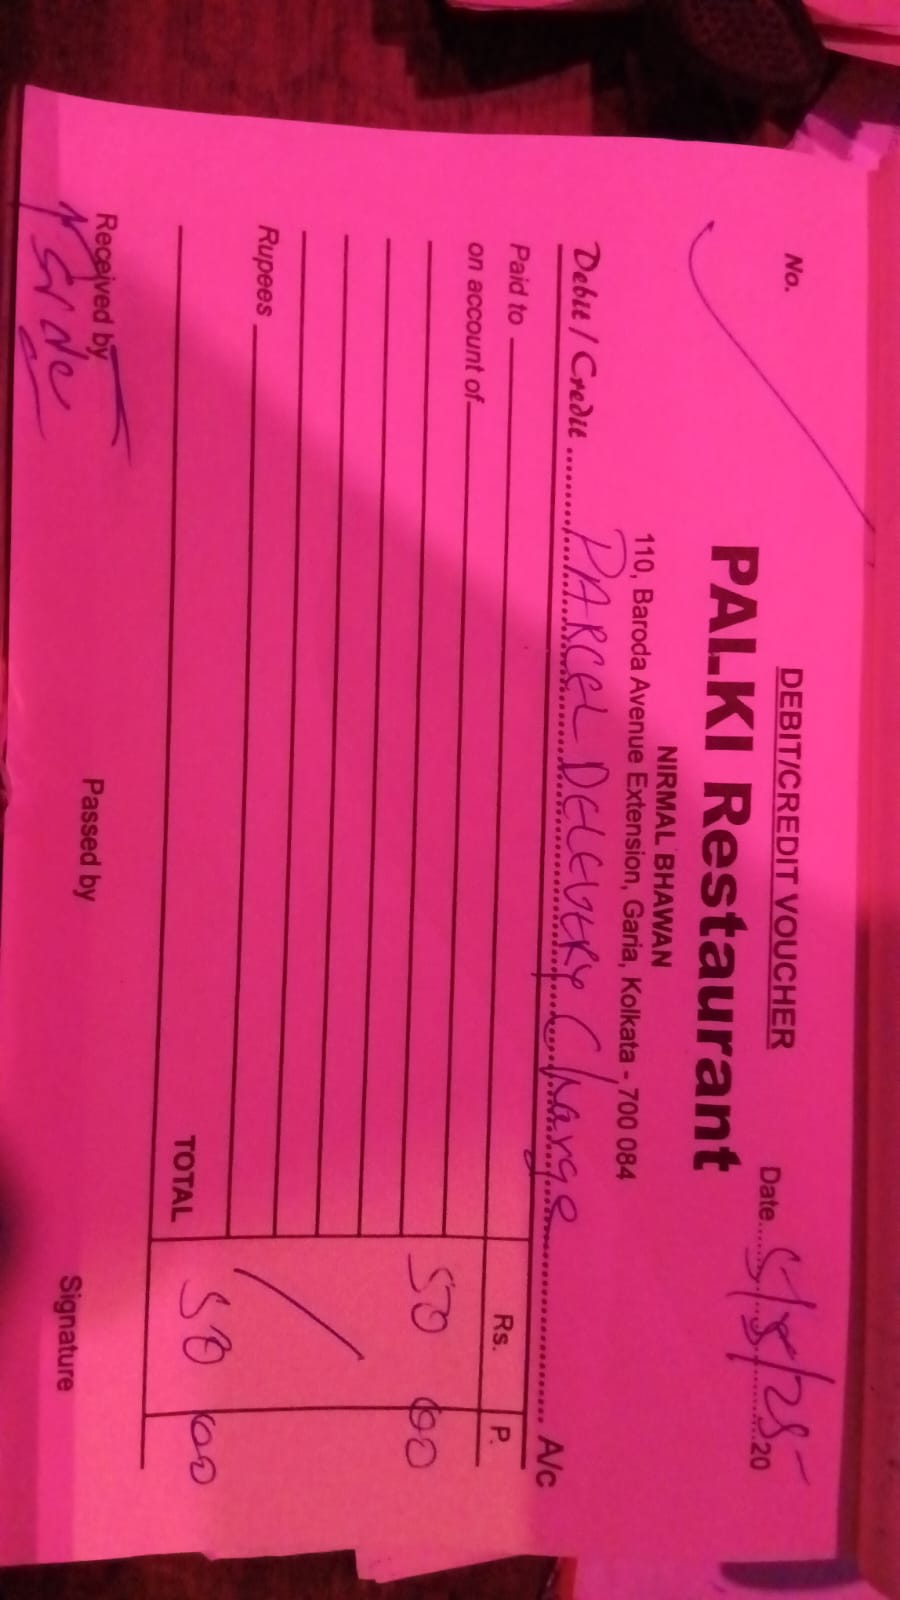 DEBIT/CREDIT VOUCHER
No.
Date 5/8/25 20
PALKI Restaurant
NIRMAL BHAWAN
110, Baroda Avenue Extension, Garia, Kolkata - 700 084
Debit / Credit PARCEL DELEVERY Charge A/c
Paid to Rs. P.
on account of
50 00
Rupees
TOTAL 50 00
Received by Passed by Signature